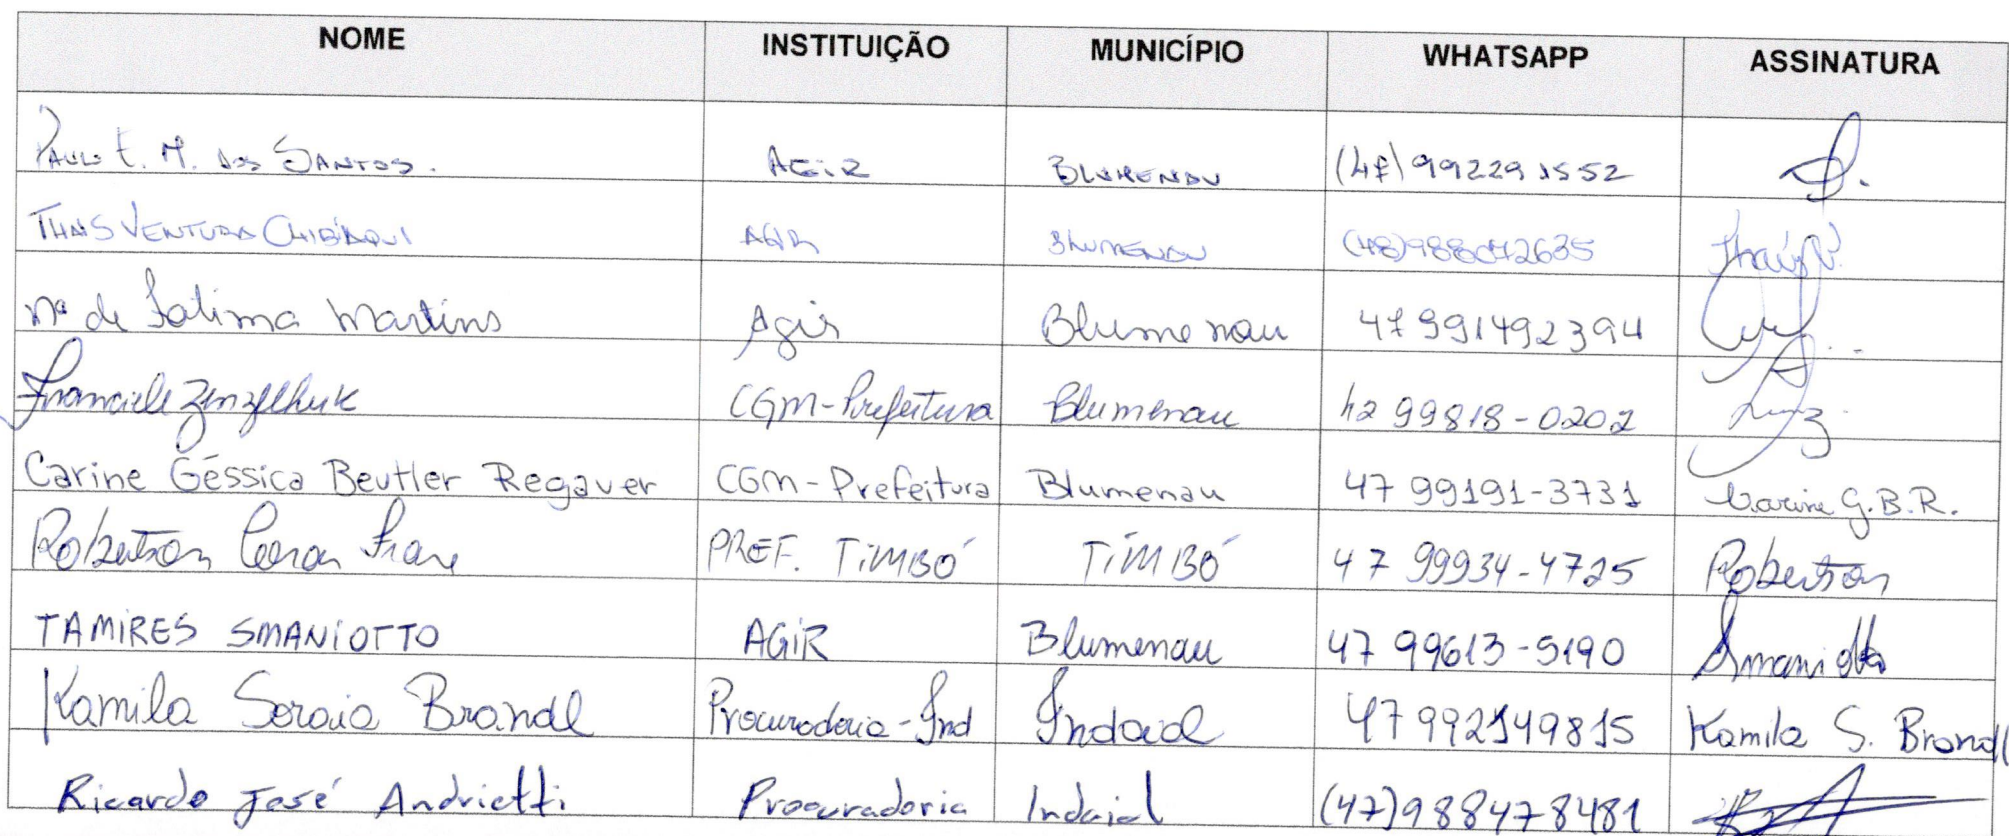 NOME INSTITUIÇÃO MUNICÍPIO WHATSAPP ASSINATURA
PAULO E. M. DOS SANTOS. AGIR BLUMENAU (47) 992291552
THAIS VENTURA AGIR BLUMENAU (48)988042635 Thaís V.
Mª de Fatima Martins Agir Blumenau 47 991492394
Franciele CGM-Prefeitura Blumenau 42 99818-0202
Carine Géssica Beutler Regauer CGM-Prefeitura Blumenau 47 99191-3731 Carine G.B.R.
Robertson PREF. TIMBÓ TIMBÓ 47 99934-4725 Robertson
TAMIRES SMANIOTTO AGIR Blumenau 47 99613-5190 Smaniotto
Kamila Soraia Brandl Procuradoria-Ind Indaial 47 992149815 Kamila S. Brandl
Ricardo José Andrietti Procuradoria Indaial (47)988478481